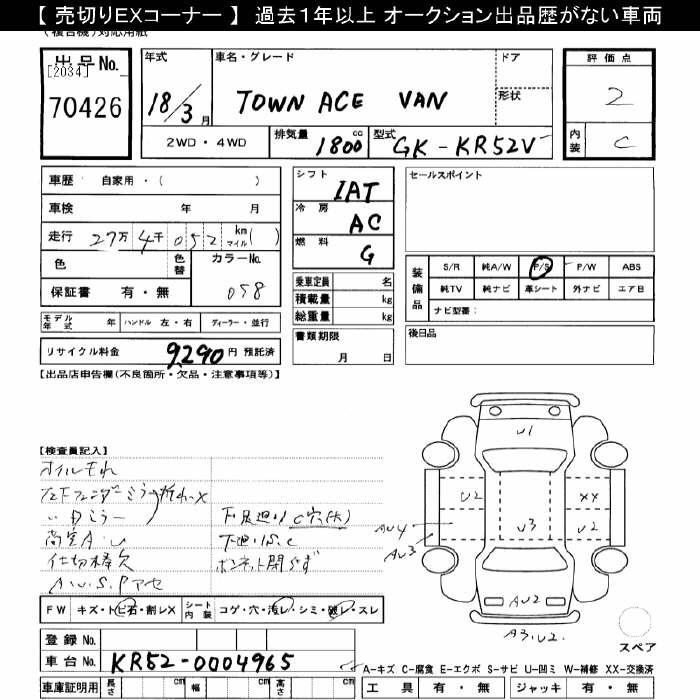 【 売切りEXコーナー 】 過去1年以上 オークション出品歴がない車両
(複合機)対応用紙
出品No.
[2034]
70426
年式
18/3月
車名・グレード
TOWN ACE VAN
ドア
形状
2WD・4WD
排気量
1800cc
型式
GK-KR52V
評価点
2
内装
C
車歴 自家用・( )
車検 年 月
走行 27万 4千 052 km マイル( )
色
色替
カラーNo.
058
保証書 有・無
モデル年式 年 ハンドル 左・右 ディーラー・並行
リサイクル料金 9,290 円 預託済
シフト
IAT
冷房
AC
燃料
G
乗車定員 名
積載量 kg
総重量 kg
書類期限
月 日
セールスポイント
装備品
S/R 純A/W P/S P/W ABS
純TV 純ナビ 革シート 外ナビ エアB
ナビ型番:
後日品
【出品店申告欄(不良箇所・欠品・注意事項等)】
【検査員記入】
オイルもれ
仕切棒欠
A.U.S.Pアセ
下廻りS.C
ボンネット開らず
U1
U2
XX
AU4
U3
U2
AU3
AU2
A3.U2.
FW キズ・トビ石・割レX シート内装 コゲ・穴・汚レ・シミ・破レ・スレ
スペア
登録 No.
車台 No. KR52-0004965
A-キズ C-腐食 E-エクボ S-サビ U-凹ミ W-補修 XX-交換済
車庫証明用 長さ cm 幅 cm 高さ cm
工具 有・無 ジャッキ 有・無